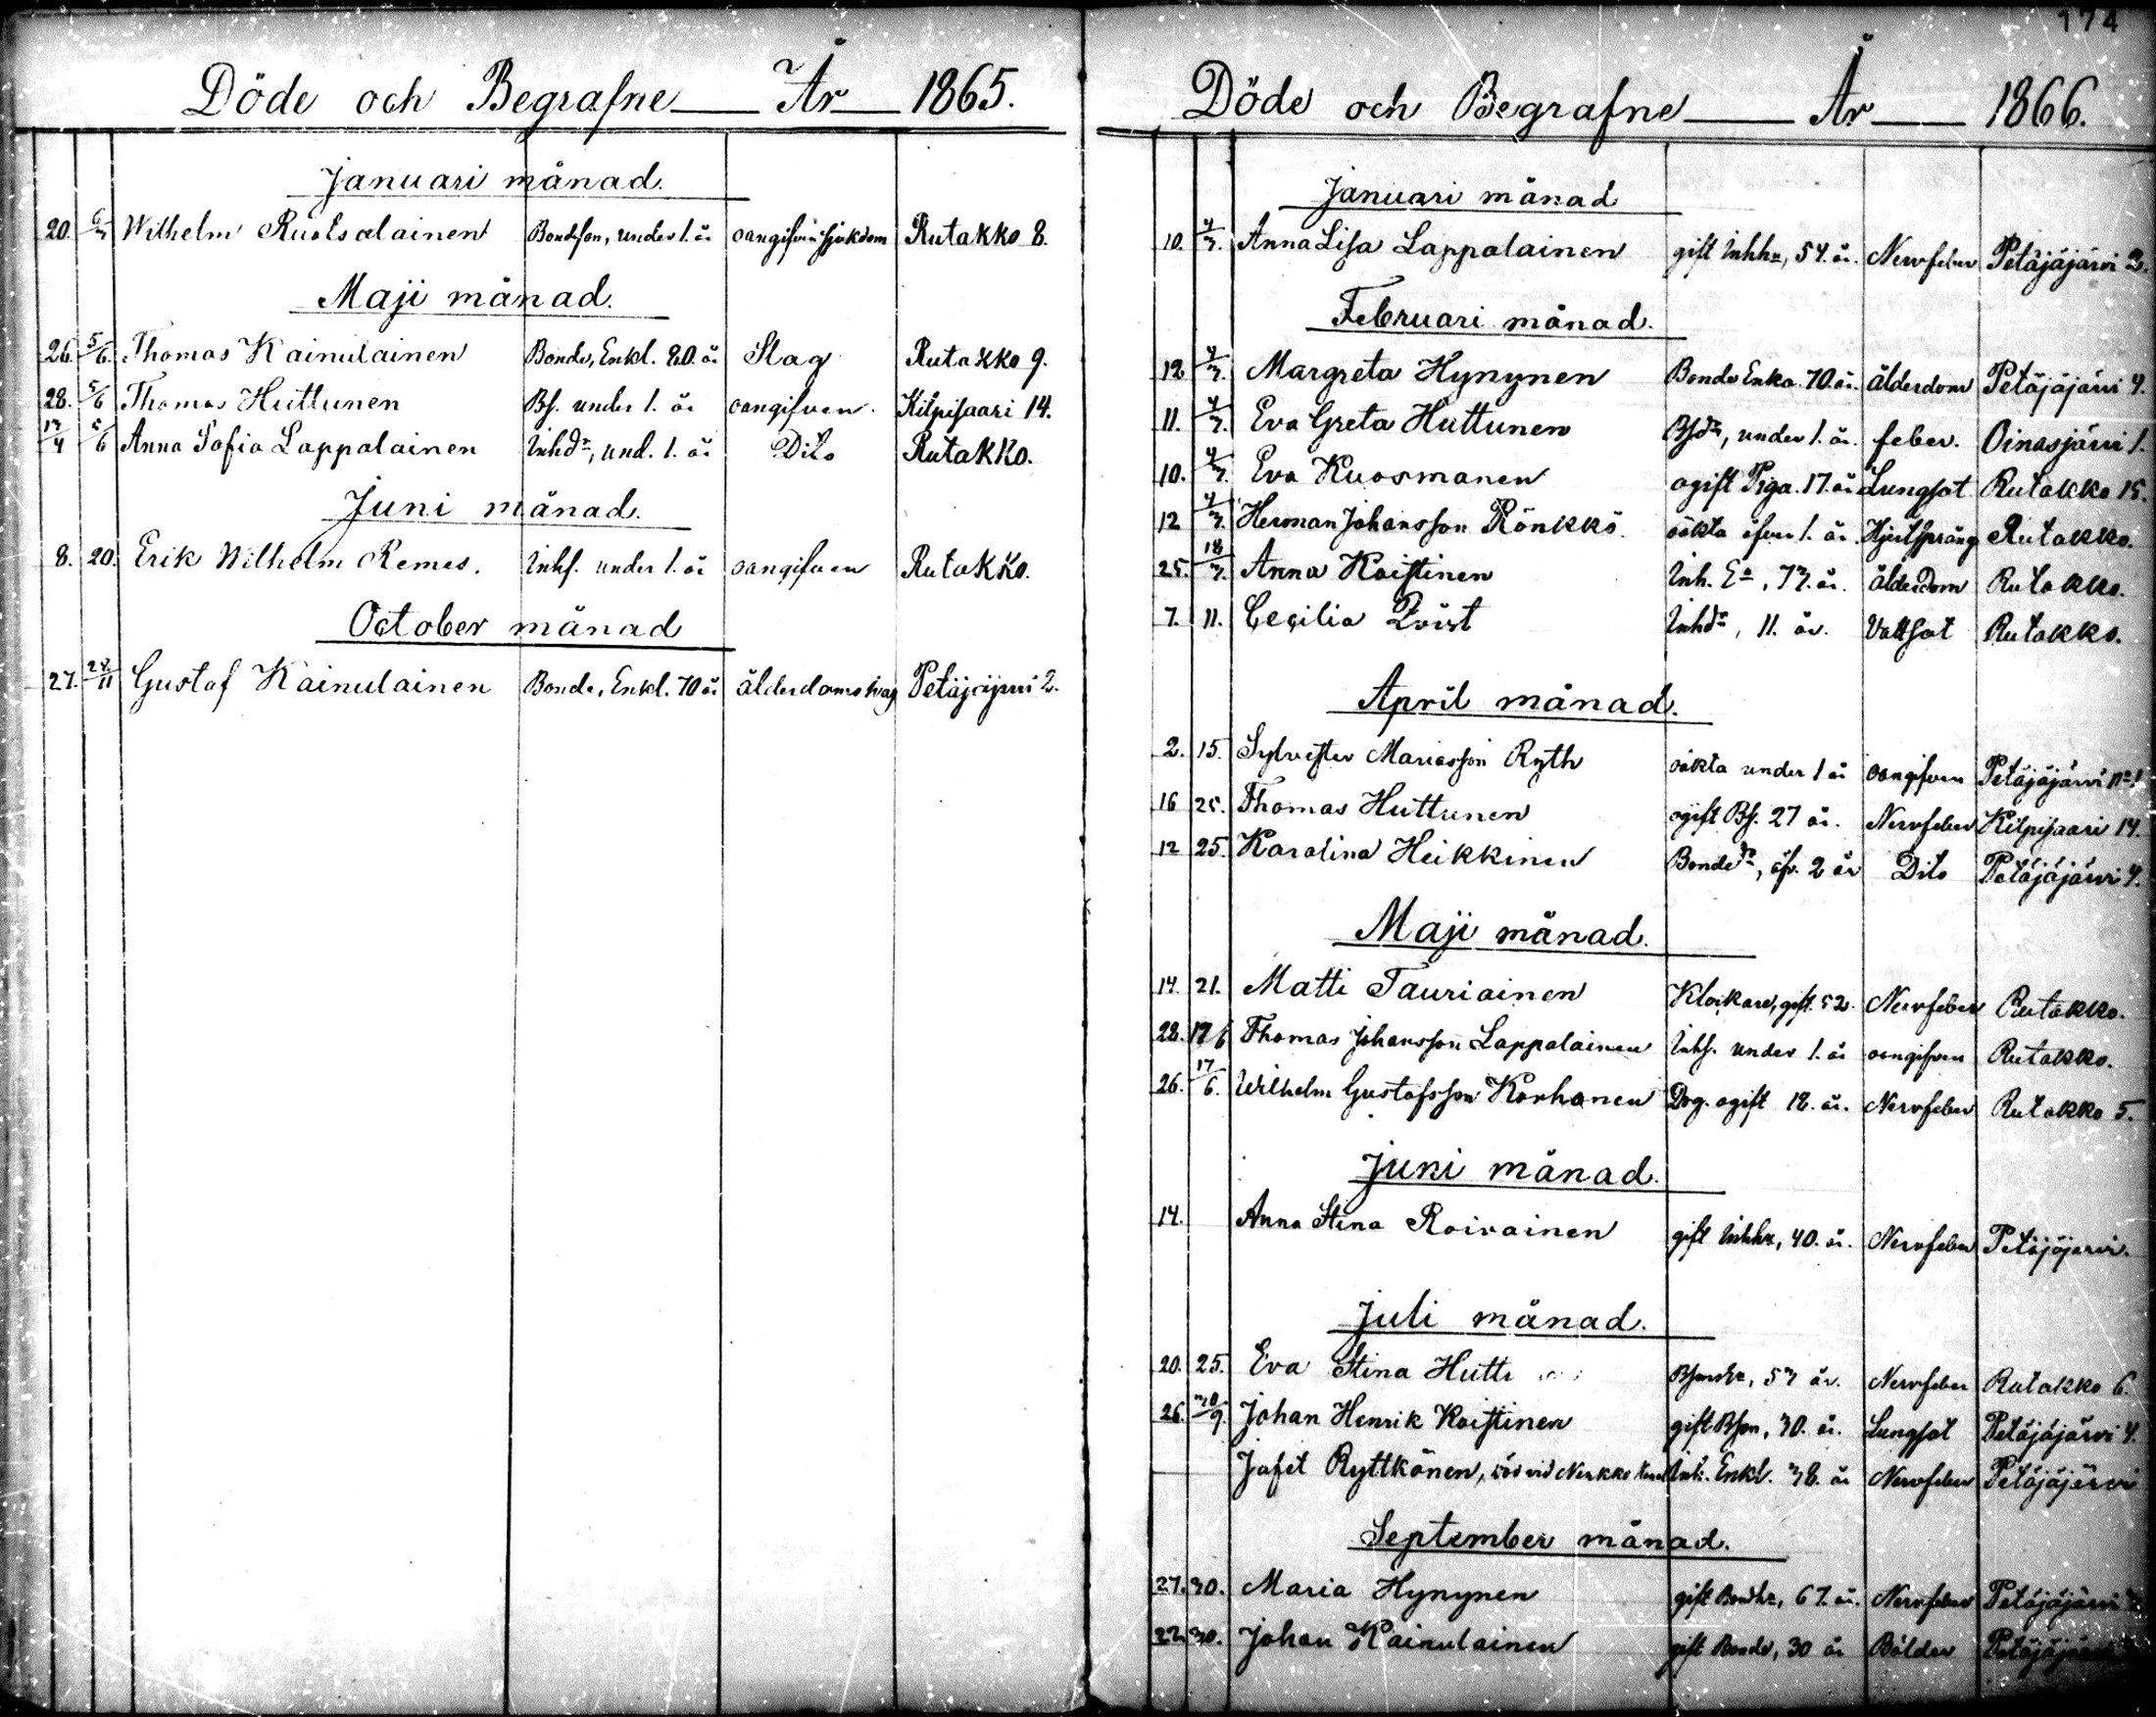 Döde och Begrafne År 1865.
Januari månad.
20. 6/3 Wilhelm Ruotsalainen Bondeson, under 1. år oangifven sjukdom Rutakko 8.
Maji månad.
26. 5/6. Thomas Kainulainen Bonde, Enkl. 80. år Slag Rutakko 9.
28. 5/6 Thomas Huttunen Bs. under 1. år oangifven. Kilpisaari 14.
13/4 5/6 Anna Sofia Lappalainen Inhdr, und. 1. år Dito Rutakko.
Juni månad.
8. 20. Erik Wilhelm Remes. Inhs. under 1. år oangifven Rutakko.
October månad
27. 11 Gustaf Kainulainen Bonde, Enkl. 70 år älderdoms Petäjäjärvi 2.
174
Döde och Begrafne År 1866.
Januari månad
10. 4/3. Anna Lisa Lappalainen gift Inhhu, 54. år. Nervfeber Petäjäjärvi 2.
Februari månad.
12 4/3. Margreta Hynynen Bonde Enka. 70. år. älderdom Petäjäjärvi 4.
11. 4/3. Eva Greta Huttunen Bsdr, under 1. år. feber. Oinasjärvi 1.
10. 4/3. Eva Kuosmanen ogift Piga. 17. år Lungsot Rutakko 15
12 4/3. Herman Johansson Rönkkö. oäkta öfver 1. år. Hjertsprång Rutakko.
25. 18/3. Anna Koistinen Inh. Ea, 73. år. älderdom Rutakko.
7. 11. Cecilia Qvist Inhdr, 11. år. Vattsot Rutakko.
April månad.
2. 15. Sylvester Mariasson Ryth oäkta under 1 år oangifven Petäjäjärvi No 1
16 25. Thomas Huttunen ogift Bs. 27 år. Nervfeber Kilpisaari 14.
12 25. Karolina Heikkinen Bondedr, öfv. 2 år Dito Petäjäjärvi 4.
Maji månad.
14. 21. Matti Tauriainen Klockare, gift. 52. Nervfeber Rutakko.
28. 17/6 Thomas Johansson Lappalainen Inhs. under 1. år oangifven Rutakko.
26. 17/6. Wilhelm Gustafsson Korhonen Drg. ogift 18. år. Nervfeber Rutakko 5.
Juni månad.
14. Anna Stina Roivainen gift Inhhu, 40. år. Nervfeber Petäjäjärvi.
Juli månad.
20. 25. Eva Stina Hutt 53 år. Nervfeber Rutakko 6.
26. 9. Johan Henrik Koistinen gift Bson, 30. år. Lungsot Petäjäjärvi 4.
Jafet Ryttkönen, död vid Nerkko Inh. Enkl. 38. år Nervfeber Petäjäjärvi
September månad.
27. 30. Maria Hynynen gift Bondhu, 67. år. Nervfeber Petäjäjärvi
22. 30. Johan Kainulainen gift Bonde, 30 år Bölder Petäjäjärvi